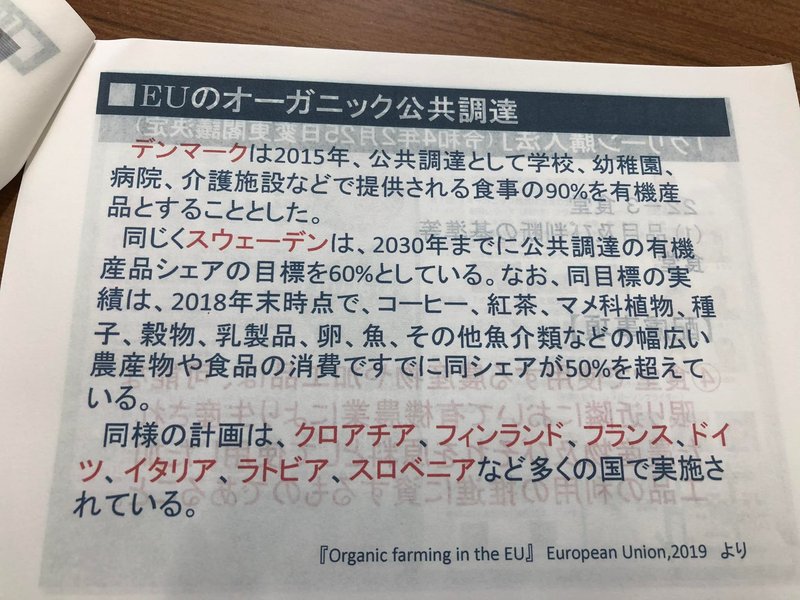 ■EUのオーガニック公共調達
デンマークは2015年、公共調達として学校、幼稚園、
病院、介護施設などで提供される食事の90%を有機産
品とすることとした。
同じくスウェーデンは、2030年までに公共調達の有機
産品シェアの目標を60%としている。なお、同目標の実
績は、2018年末時点で、コーヒー、紅茶、マメ科植物、種
子、穀物、乳製品、卵、魚、その他魚介類などの幅広い
農産物や食品の消費ですでに同シェアが50%を超えて
いる。
同様の計画は、クロアチア、フィンランド、フランス、ドイ
ツ、イタリア、ラトビア、スロベニアなど多くの国で実施さ
れている。
『Organic farming in the EU』 European Union,2019 より